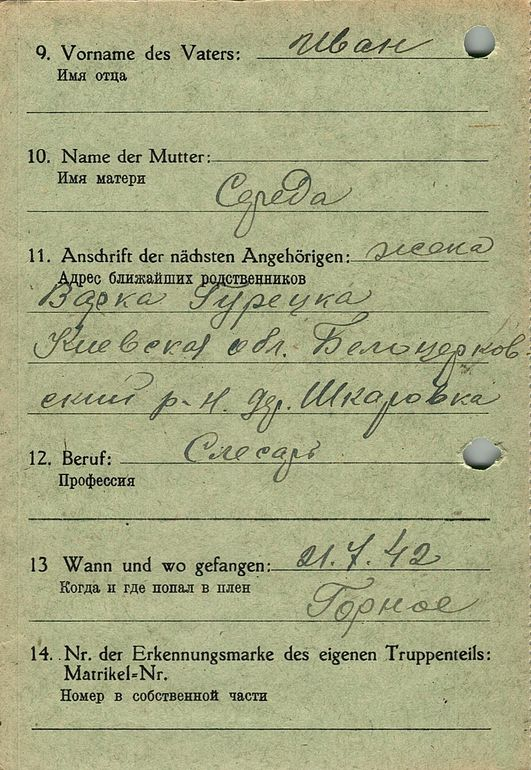 9. Vorname des Vaters: Иван
Имя отца
10. Name der Mutter:
Имя матери
Середа
11. Anschrift der nächsten Angehörigen: жена
Адрес ближайших родственников
Гурецка
Киевская обл. Белоцерков-
ский р-н. др. Шкаровка
12. Beruf: Слесарь
Профессия
13 Wann und wo gefangen: 21.7.42
Когда и где попал в плен
Горное
14. Nr. der Erkennungsmarke des eigenen Truppenteils:
Matrikel-Nr.
Номер в собственной части